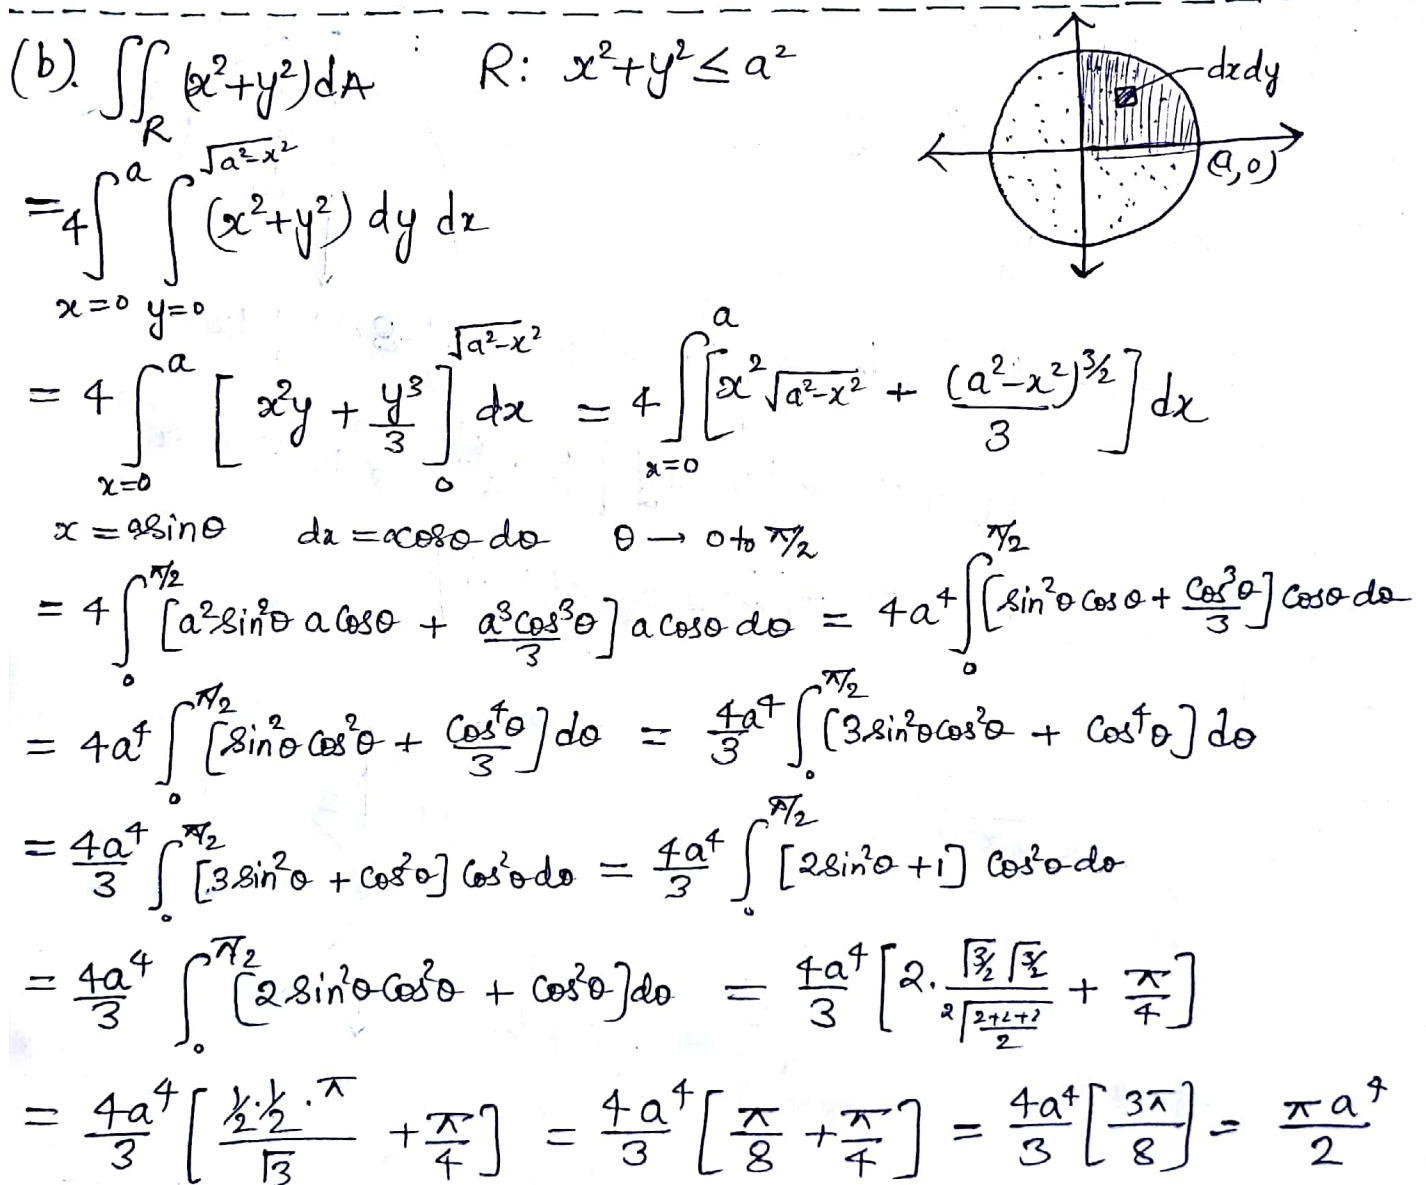 (b). ∬_R (x²+y²)dA R: x²+y² ≤ a²
dxdy
(a,0)
= 4∫_{x=0}^{a} ∫_{y=0}^{√a²-x²} (x²+y²) dy dx
= 4 ∫_{x=0}^{a} [x²y + y³/3]_0^{√a²-x²} dx = 4 ∫_{x=0}^{a} [x²√a²-x² + (a²-x²)^{3/2}/3] dx
x = a sinθ dx = a cosθ dθ θ → 0 to π/2
= 4 ∫_0^{π/2} [a² sin²θ a cosθ + a³cos³θ/3] a cosθ dθ = 4a⁴ ∫_0^{π/2} [sin²θ cosθ + cos³θ/3] cosθ dθ
= 4a⁴ ∫_0^{π/2} [sin²θ cos²θ + cos⁴θ/3] dθ = 4a⁴/3 ∫_0^{π/2} [3sin²θcos²θ + cos⁴θ] dθ
= 4a⁴/3 ∫_0^{π/2} [3sin²θ + cos²θ] cos²θ dθ = 4a⁴/3 ∫_0^{π/2} [2sin²θ + 1] cos²θ dθ
= 4a⁴/3 ∫_0^{π/2} [2sin²θ cos²θ + cos²θ] dθ = 4a⁴/3 [2 · Γ3/2 Γ3/2 / 2Γ(2+2+2)/2 + π/4]
= 4a⁴/3 [½·½·π / Γ3 + π/4] = 4a⁴/3 [π/8 + π/4] = 4a⁴/3 [3π/8] = πa⁴/2